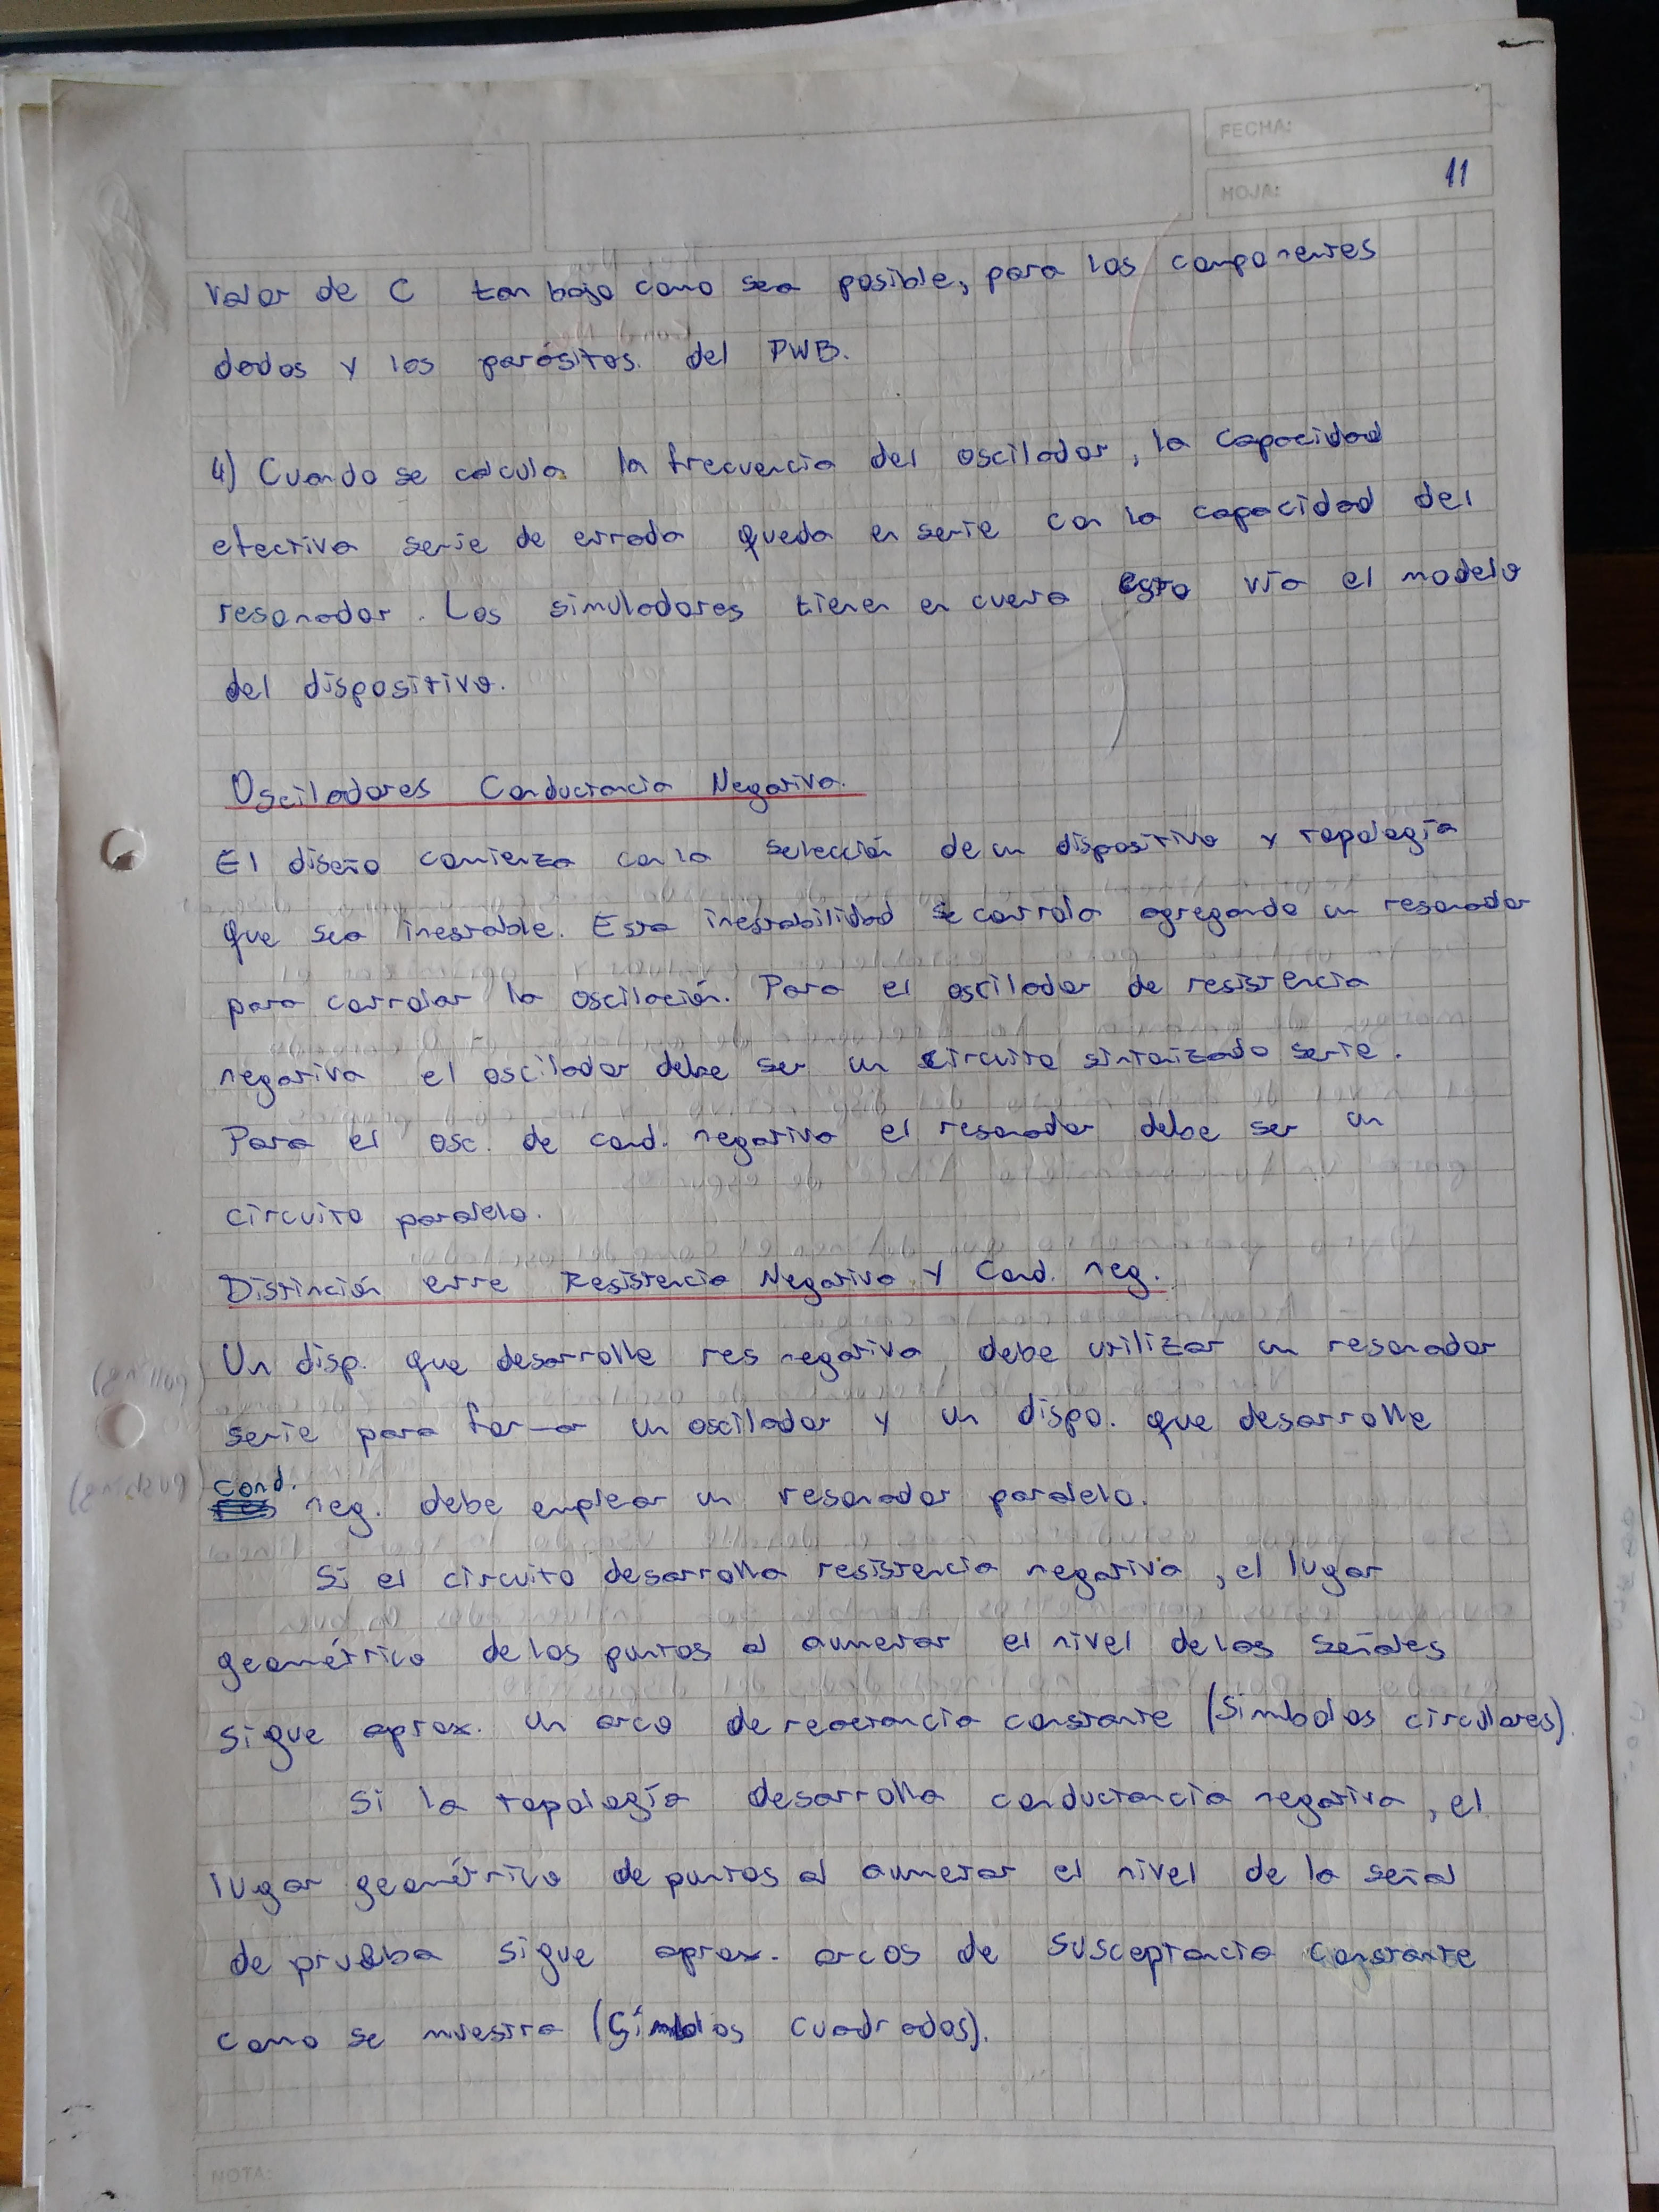 FECHA:
HOJA: 11
Valor de C tan bajo como sea posible, para los componentes
dados y los parásitos. del PWB.
4) Cuando se calcula la frecuencia del oscilador, la capacidad
efectiva serie de entrada queda en serie con la capacidad del
resonador. Los simuladores tienen en cuenta esto vía el modelo
del dispositivo.
Osciladores Conductancia Negativa.
El diseño comienza con la selección de un dispositivo y topología
que sea inestable. Esta inestabilidad se controla agregando un resonador
para controlar la oscilación. Para el oscilador de resistencia
negativa el oscilador debe ser un circuito sintonizado serie.
Para el osc. de cond. negativa el resonador debe ser un
circuito paralelo.
Distinción entre Resistencia Negativa y Cond. neg.
Un disp. que desarrolle res negativa debe utilizar un resonador
serie para formar un oscilador y un dispo. que desarrolle
cond. neg. debe emplear un resonador paralelo.
Si el circuito desarrolla resistencia negativa, el lugar
geométrico de los puntos al aumentar el nivel de las señales
sigue aprox. un arco de reactancia constante (Simbolos circulares)
Si la topología desarrolla conductancia negativa, el
lugar geométrico de puntos al aumentar el nivel de la señal
de prueba sigue aprox. arcos de susceptancia constante
como se muestra (Símbolos cuadrados).
NOTA: